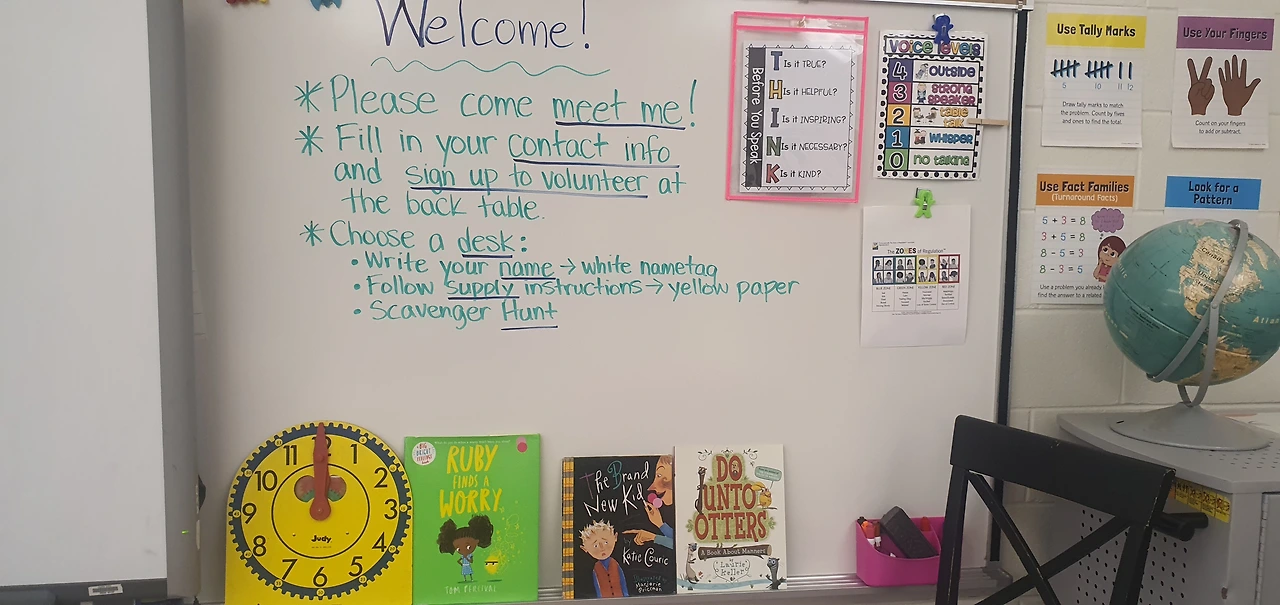 Welcome!
* Please come meet me!
* Fill in your contact info
and sign up to volunteer at
the back table.
* Choose a desk:
• Write your name → white nametag
• Follow supply instructions → yellow paper
• Scavenger Hunt
Before You Speak
T Is it TRUE?
H Is it HELPFUL?
I Is it INSPIRING?
N Is it NECESSARY?
K Is it KIND?
Voice levels
4 OUTSIDE
3 STRONG SPEAKER
2 table talk
1 WHISPER
0 NO TALKING
The ZONES of Regulation
Use Tally Marks
5 10 11 12
Draw tally marks to match
the problem. Count by fives
and ones to find the total.
Use Your Fingers
Count on your fingers
to add or subtract.
Use Fact Families
(Turnaround Facts)
5 + 3 = 8
3 + 5 = 8
8 - 5 = 3
8 - 3 = 5
Use a problem you already
find the answer to a related
Look for a
Pattern
11 1
10 2
9 3
8 4
7 6 5
Judy
RUBY
FINDS A
WORRY
TOM PERCIVAL
The Brand
New Kid
Katie Couric
Marjorie Priceman
DO
UNTO
OTTERS
A Book About Manners
Laurie Keller